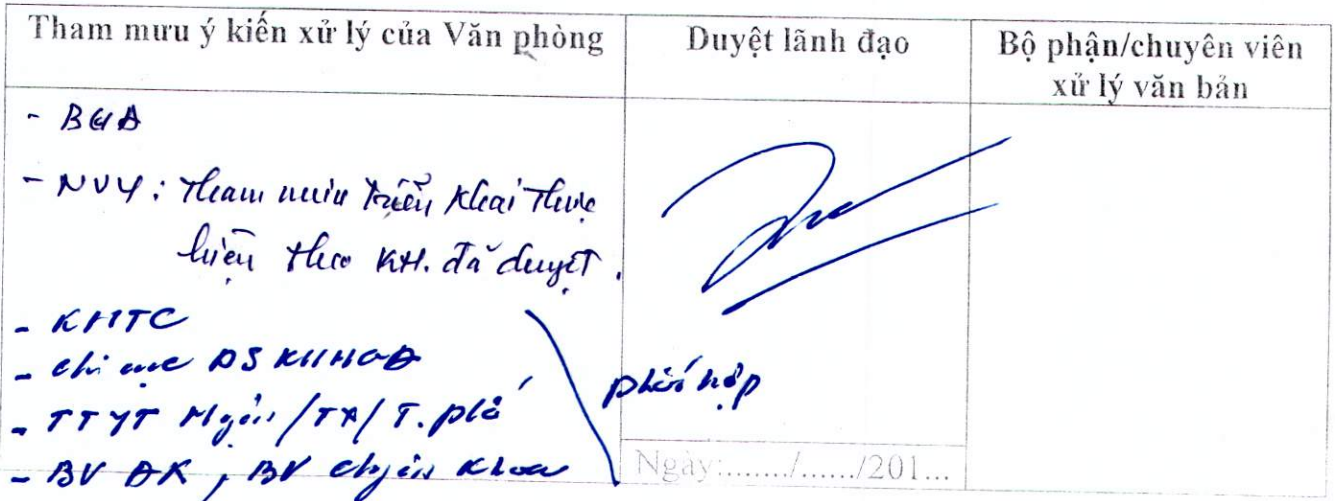 Tham mưu ý kiến xử lý của Văn phòng
Duyệt lãnh đạo
Bộ phận/chuyên viên
xử lý văn bản
- BGĐ
- NVY: Tham mưu triển khai thực
hiện theo KH. đã duyệt.
- KHTC
- Chi cục DS KHHGĐ
- TTYT Huyện/TX/T.phố
- BV ĐK, BV chuyên khoa
phối hợp
Ngày:......./....../201...